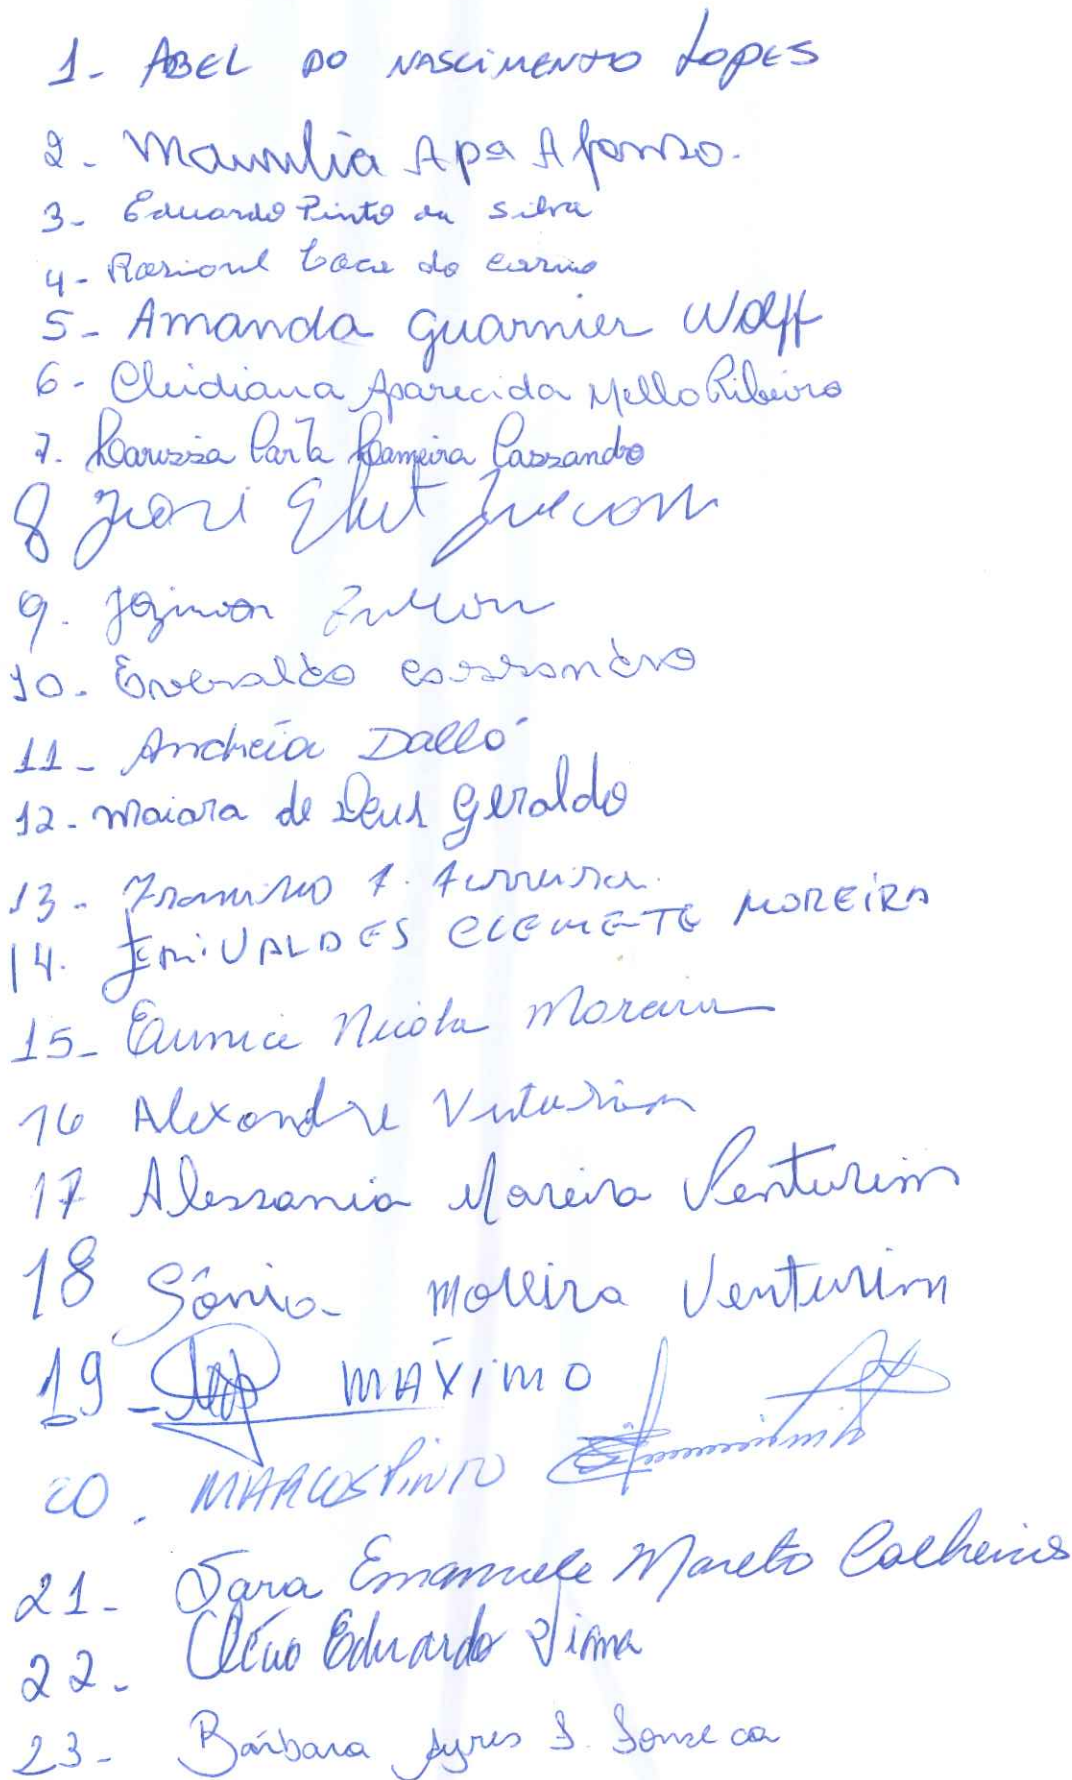 1- ABEL DO NASCIMENTO LOPES
2- Maunilia Apa Afonso.
3- Eduardo Pinto da Silva
4- do Carmo
5- Amanda Guarnier Wolff
6- Cleidiana Aparecida Mello Ribeiro
7. Karissia Carla Cassandro
8
9.
10- Everaldo Cassandro
11- Andréia Dalló
12- Maiara de Deus Geraldo
13- Francisco A. Ferreira.
14. CLEMETE MOREIRA
15- Eunice Nicola Moreira
16 Alexandre Venturim
17 Alessania Moreira Venturim
18 Sônia Moreira Venturim
19- MÁXIMO
20. MARCOS PINTO
21- Sara Emanuele Mareto Calheiros
22- Clécio Eduardo Viana
23- Bárbara Ayres S. Fonseca